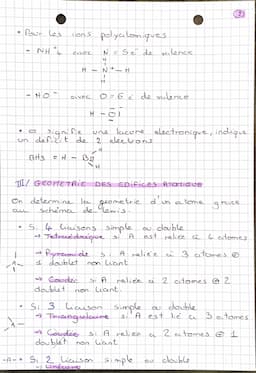 ②
• Pour les ions polyatomiques
- NH⁺₄ avec N = 5 é de valence
H
H - N⁺ - H
H
- HO⁻ avec O = 6 é de valence
H - O
• □ signifie une lacune électronique, indique
un déficit de 2 électrons
BH3 = H - B
H
H
III/ GEOMETRIE DES EDIFICES ATOMIQUE
On détermine la géométrie d'un atome grâce
au schéma de Lewis.
• Si 4 liaisons simple ou double
→ Tetraédrique si A est reliée à 4 atomes
→ Pyramide si A reliée à 3 atomes ⊕
1 doublet non liant
→ Coudée si A reliée à 2 atomes ⊕ 2
doublet non liant
• Si 3 liaison simple ou double
→ Triangulaire si A est lié à 3 atomes
→ Coudée si A reliée à 2 atomes ⊕ 1
doublet non liant
-A- • Si 2 liaison simple ou double
→ Linéaire